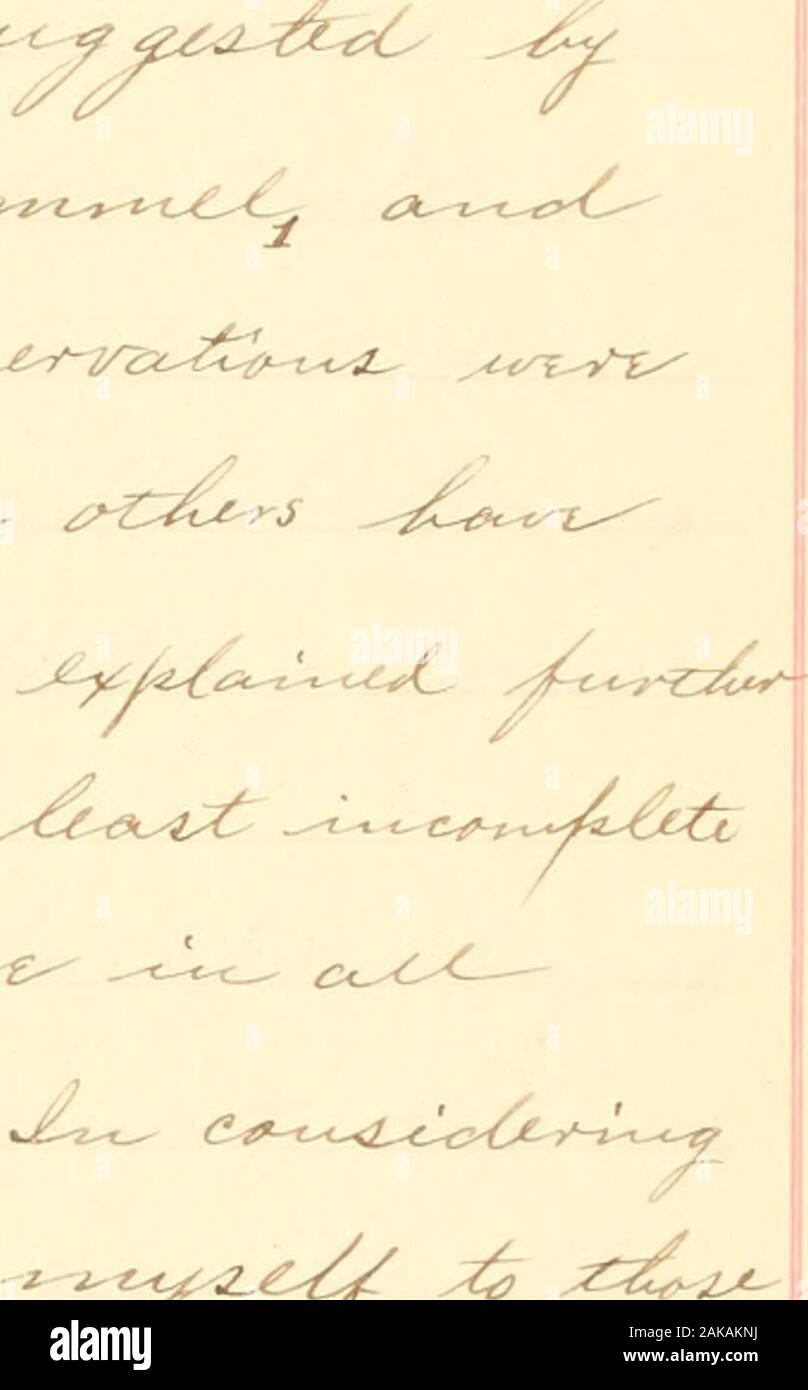 uggested by
mmel,1 and
ervations were
others have
explained further
least incomplete
e in all
In considering
myself to those
alamy
alamy
alamy
alamy
Image ID: 2AKAKNJ
www.alamy.com